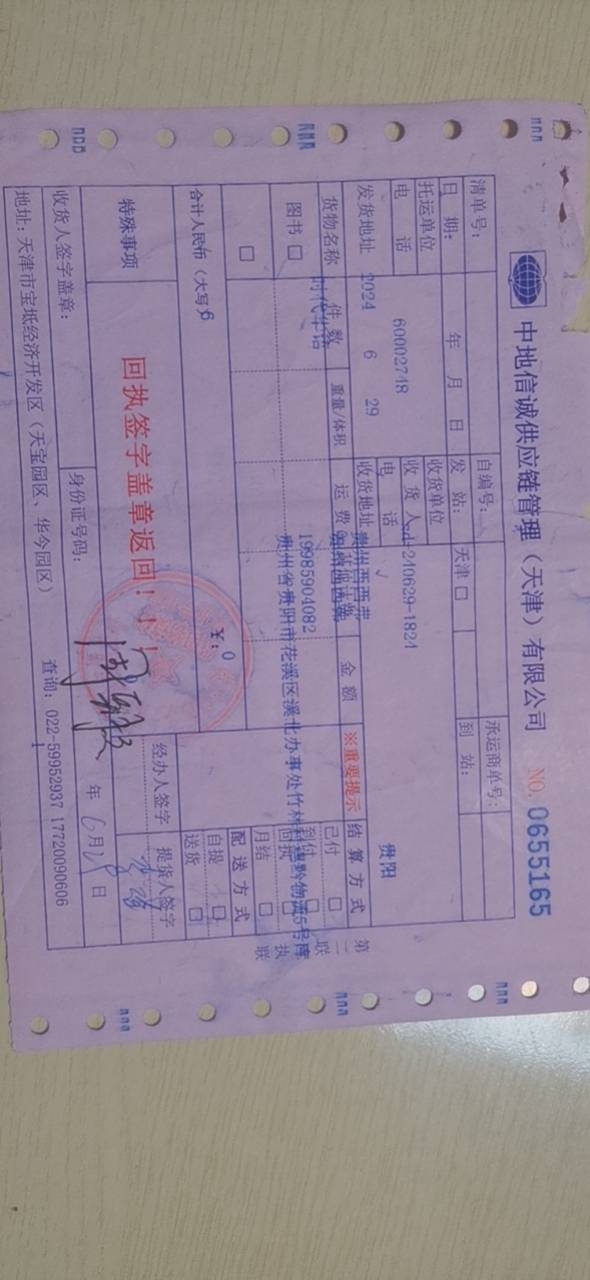 中地信诚供应链管理（天津）有限公司 NO. 0655165
清单号： 自编号： 承运商单号：
日 期： 年 月 日 发 站： 天津 □ 到 站：
托运单位 收货单位
60002748 d-240629-1824 贵阳
电 话 收 货 人
电 话 √
发货地址 2024 6 29 收货地址
货物名称 件 数 重量/体积 运 费 金 额 ※重要提示 结 算 方 式
时代华语
图书 □ 19985904082 已付 □
到付 □
贵州省贵阳市花溪区溪北办事处竹林村惠黔物流5号库
回执 □
□ 月结 □
配 送 方 式
合计人民币（大写） 6 ￥: 0 自提 □
送货 □
特殊事项 回执签字盖章返回！！！ 经办人签字 提货人签字
收货人签字盖章： 身份证号码： 年 月 日
地址：天津市宝坻经济开发区（天宝园区、华今园区） 查询：022-59952937 17720090606
第二联 回执联